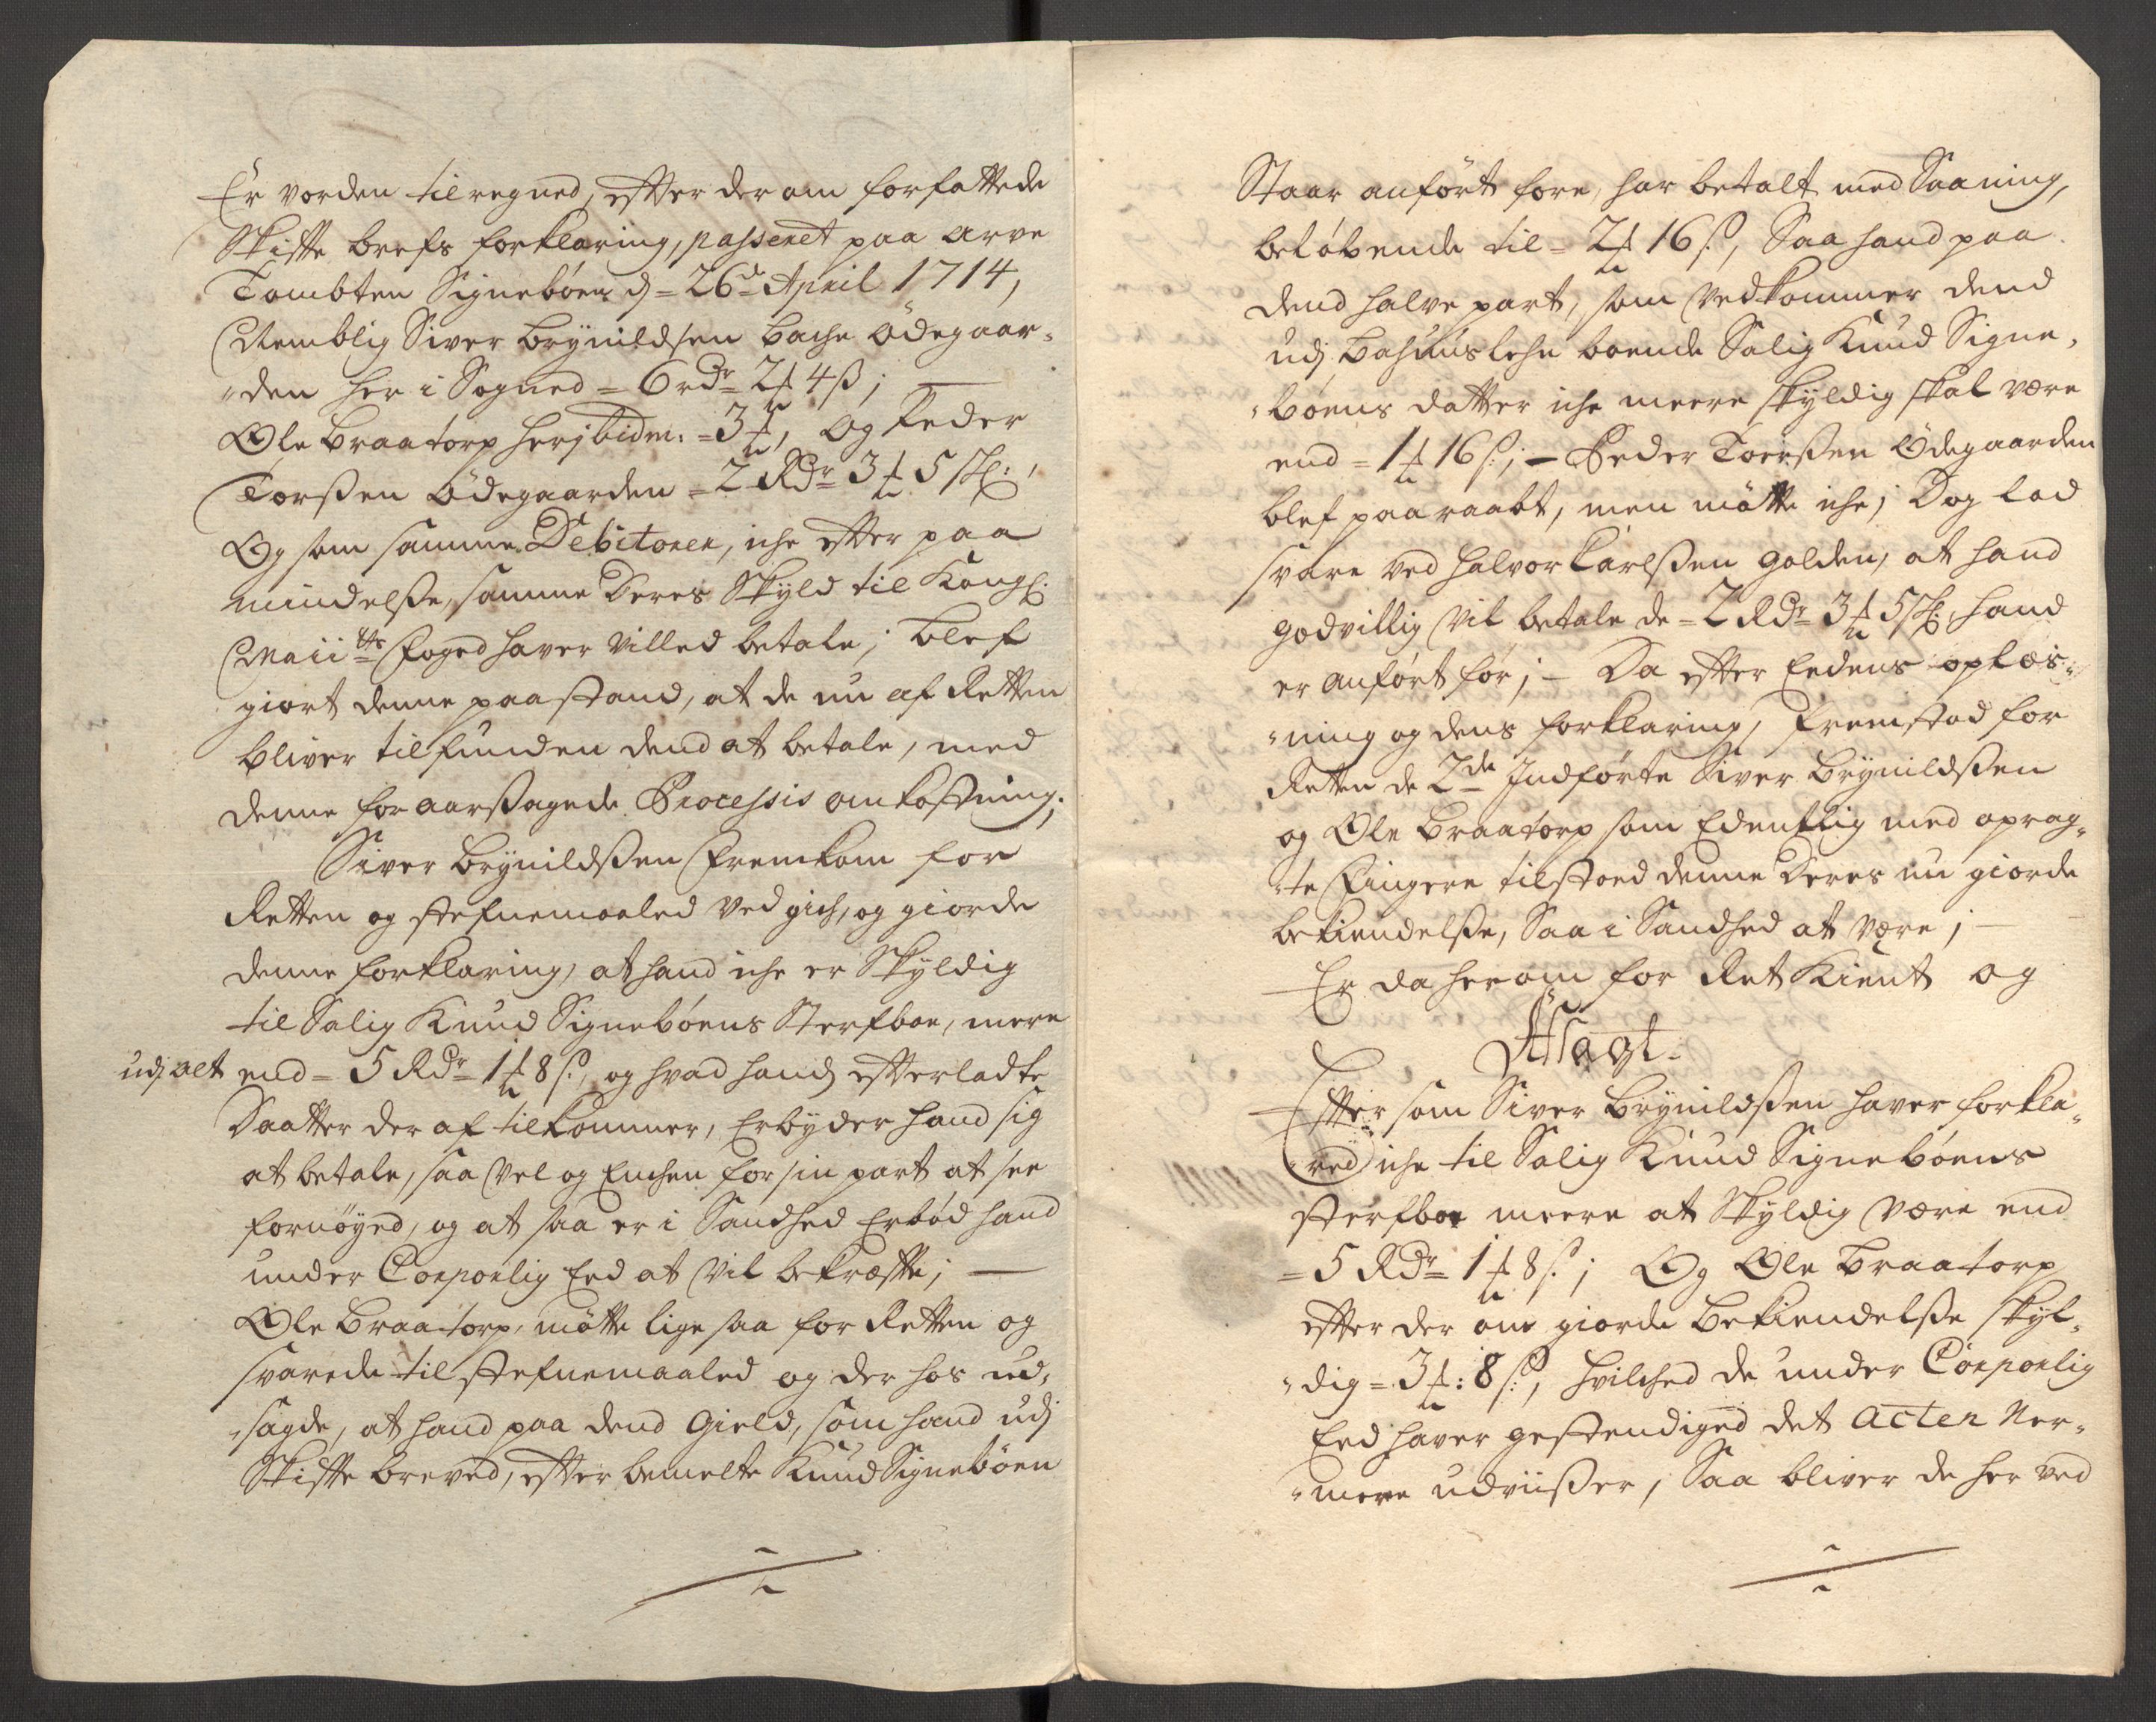 Er vorden tilregned, efter der om forfattede
Skifte brefs forklaring, passeret paa arve
Tombten Signebøen d = 26de April 1714,
Nemblig Siver Brynildsen Bache Ödegaar-
den her i Sogned = 6 rdr 2 ₰ 4 ß;
Ole Braatorp heribidm: = 3 ₰, og Peder
Torßen Ödegaarden = 2 Rdr 3 ₰ 5 sk:,
Og som samme Debitorer, iche efter paa
mindelße, samme Deres Skyld til Kongl:
Maiitts Foged haver villed betale; blef
giort denne paastand, at de nu af Retten
bliver tilfunden dend at betale, med
denne foraarßagede Processis omkostning;
Siver Brynildßen Fremkom for
Retten og stefnemaaled ved gich, og giorde
denne forklaring, at hand iche er Skyldig
til Salig Knud Signebøens Sterfboe, mere
udj alt end = 5 Rdr 1 ₰ 8 ß, og hvad hands efterladte
Daatter der af tilkommer, Erbyder hand sig
at betale, saa vel og Enchen for sin part at see
fornöyed, og at saa er i Sandhed Erbød hand
under Corporlig Eed at vil bekræfte;
Ole Braatorp, mötte lige saa for Retten og
svarede til stefnemaaled og der hos ud-
sagde, at hand paa dend Gield, som hand udj
Skifte breved, efter bemelte Knud Signebøen
Staar anført fore, har betalt med Saaning,
beløbende til = 2 ₰ 16 ß, Saa hand paa
dend halve part, som vedkommer dend
udj Bahuuslehn boende Salig Knud Signe-
bøens datter iche meere skyldig skal være
end = 1 ₰ 16 ß; - Peder Toerßen Ödegaarden
blef paaraabt, men mötte iche; Dog lod
svare ved Halvor Karlßen Golden, at hand
godvillig vil betale de = 2 Rdr 3 ₰ 5 sk: hand
er anført for; - Da efter Eedens oplæs-
ning og dens forklaring, Fremstod for
Retten de 2de Indførte Siver Brynildßen
og Ole Braatorp som Edentlig med oprag-
te Fingere tilstoed denne Deres nu giorde
bekiendelße, Saa i Sandhed at være;
Er da herom for Ret Kient og
Afsagt.
Efter som Siver Brynildßen haver forkla-
red iche til Salig Knud Signebøens
sterfboe meere at Skyldig være end
= 5 Rdr 1 ₰ 8 ß; Og Ole Braatorp
efter der om giorde Bekiendelße skyl-
dig = 3 ₰: 8 ß, hvilched de under Corporlig
Eed haver gestendiged det acten ner-
mere udviißer, Saa bliver de her ved